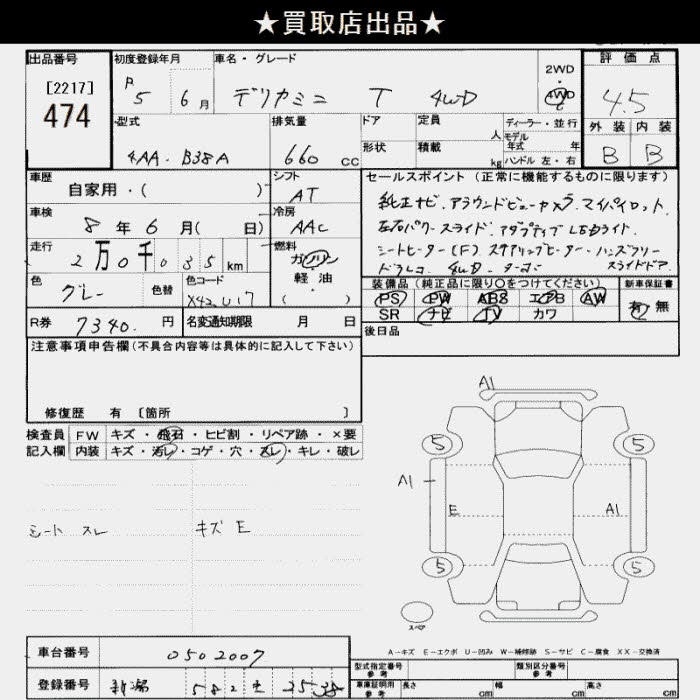 ★買取店出品★
出品番号
[2217]
474
初度登録年月
R 5 6 月
車名・グレード
デリカミニ T 4WD
2WD
・
4WD
評価点
4.5
外装 内装
B B
型式
4AA-B38A
排気量
660 cc
ドア
形状
定員 人
積載 kg
ディーラー・並行
モデル年式 年
ハンドル 左・右
車歴
自家用・( )
シフト
AT
車検
8 年 6 月( 日)
冷房
AAC
走行
2 万 0 千 0 3 5 km
燃料
ガソリン
軽・油
( ・ )
色
グレー
色替
色コード
X42U17
R券
7340. 円
名変通知期限 月 日
セールスポイント(正常に機能するものに限ります)
純正ナビ.アラウンドビューカメラ.マイパイロット.
左右パワースライド.アダプティブLEDライト
シートヒーター(F) ステアリングヒーター.ハンズフリー
ドラレコ 4WD.ターボー スライドドア.
装備品(純正品に限り〇をつけてください)
PS PW ABS エアB AW
SR ナビ TV カワ
新車保証書
有・無
後日品
注意事項申告欄(不具合内容等は具体的に記入して下さい)
修復歴 有 〔箇所 〕
検査員
記入欄
FW キズ・飛石・ヒビ割・リペア跡・×要
内装 キズ・汚レ・コゲ・穴・スレ・キレ・破レ
シート スレ
キズ E
A1
5 5
A1 E A1
5 5
スペア
A-キズ E-エクボ U-凹み W-補修跡 S-サビ C-腐食 XX-交換済
車台番号
0502007
登録番号
新潟 582 2538
型式指定番号
参考
類別区分番号
参考
車庫証明用
参考
長さ cm 幅 cm 高さ cm